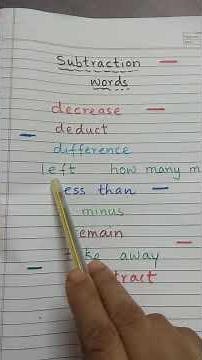 Subtraction
words
decrease
deduct
difference
left how many m
ess than
minus
emain
ke away
tract